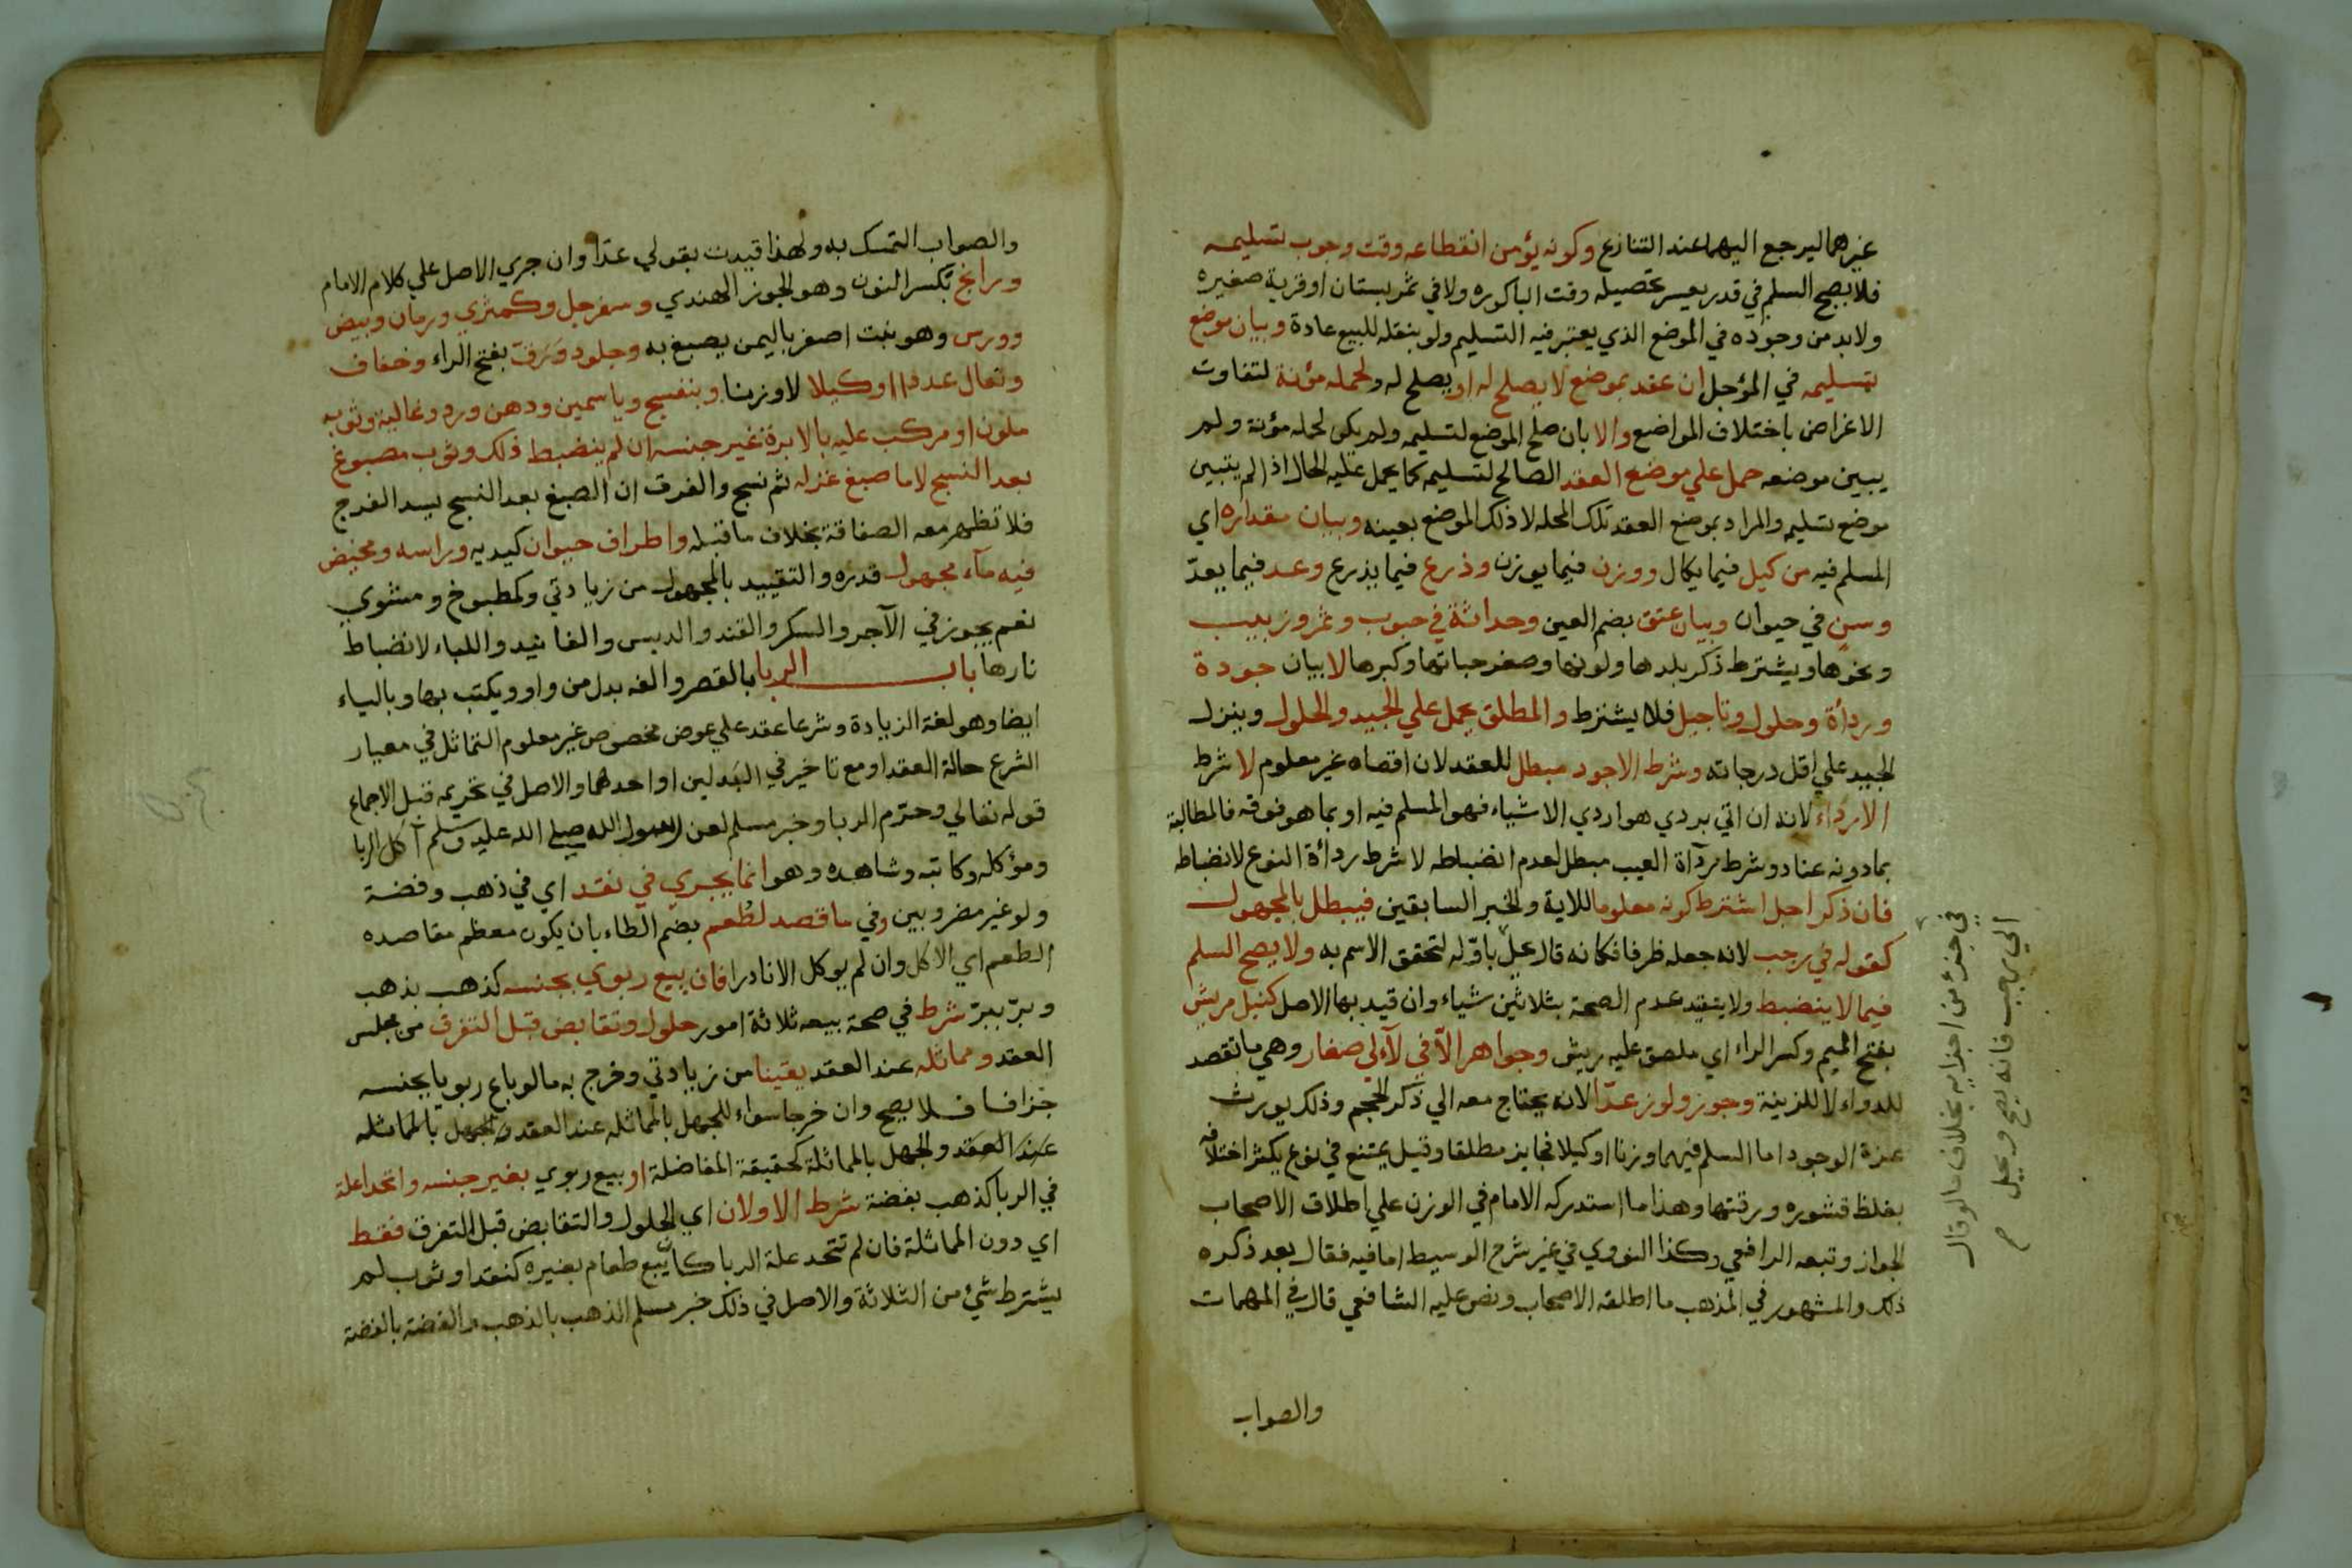 غيرهما ليرجع اليهما عند التنازع وكونه يؤمن انقطاعه وقت وجوب تسليمه
فلا يصح السلم في قدر يعسر تحصيله وقت الباكوره ولا في ثمر بستان او قرية صغيره
ولا بد من وجوده في الموضع الذي يعتبر فيه التسليم ولو بنقله للبيع عادة وبيان موضع
تسليمه في المؤجل ان عقد بموضع لا يصلح له او يصلح له ولحمله مؤنة لتفاوت
الاغراض باختلاف المواضع والا بان صلح الموضع لتسليمه ولم يكن لحمله مؤنة ولم
يبين موضعه حمل علي موضع العقد الصالح لتسليمه كما يحمل عليه الحال اذا لم يتبين
موضع تسليم والمراد بموضع العقد تلك المحله لا ذلك الموضع بعينه وبيان مقداره اي
المسلم فيه من كيل فيما يكال ووزن فيما يوزن وذرع فيما يذرع وعد فيما يعدّ
وسن في حيوان وبيان عتق بضم العين وحداثة في حبوب وتمر وزبيب
ونحوها ويشترط ذكر بلدها ولونها وصغر حباتها وكبرها لا بيان جودة
ورداأة وحلول وتاجيل فلا يشترط والمطلق يحمل علي الجيد والحلول وينزل
الجيد علي اقل درجاته وشرط الاجود مبطل للعقد لان اقصاه غير معلوم لا شرط
الارداء لانه ان اتي بردي هو اردي الاشياء فهو المسلم فيه او بما هو فوقه فالمطالبة
بما دونه عناد وشرط رداة العيب مبطل لعدم انضباطه لا شرط رداأة النوع لانضباطه
فان ذكر اجل اشترط كونه معلوما للاية والخبر السابقين فيبطل بالمجهول
كقوله في رجب لانه جعله ظرفا فكانه قال محل باوّله لتحقق الاسم به ولا يصح السلم
فيما لا ينضبط ولا يتقيد عدم الصحة بثلاثين شياء وان قيد بها الاصل كنبل مريش
بفتح الميم وكسر الراء اي ملصق عليه ريش وجواهر الاّ في لآلي صغار وهي ما تقصد
للدواء لا للزينة وجوز ولوز عدّا لانه يحتاج معه الي ذكر الحجم وذلك يورث
عزة الوجود اما السلم فيهما وزنا او كيلا فجايز مطلقا وقيل يمتنع في نوع يكثر اختلافه
بغلظ قشوره ورقتها وهذا ما استدركه الامام في الوزن علي اطلاق الاصحاب
الجواز وتبعه الرافعي وكذا النووي في غير شرح الوسيط اما فيه فقال بعد ذكره
ذلك والمشهور في المذهب ما اطلقه الاصحاب ونص عليه الشافعي قال في المهمات
والصواب
في جزء من اجزايه بخلاف ما لو قال
الي رجب فانه يصح ويحل
والصواب التمسك به ولهذا قيدت بقولي عدّا وان جري الاصل علي كلام الامام
ورانج بكسر النون وهو الجوز الهندي وسفرجل وكمثري ورمان وبيض
وورس وهو نبت اصفر باليمن يصبغ به وجلود ورق بفتح الراء وخفاف
ونعال عددا او كيلا لا وزنا وبنفسج وياسمين ودهن ورد وغالية وثوب
ملون او مركب عليه بالابرة غير جنسه ان لم ينضبط ذلك وثوب مصبوغ
بعد النسج لا ما صبغ غزله ثم نسج والفرق ان الصبغ بعد النسج يسد الفرج
فلا تظهر معه الصفاقة بخلاف ما قبله واطراف حيوان كيديه وراسه ومخيض
فيه مآء مجهول قدره والتقييد بالمجهول من زيادتي وكمطبوخ ومشوي
نعم يجوز في الآجر والسكر والقند والدبس والفانيد واللباء لانضباط
نارها باب الربا بالقصر والفه بدل من واو ويكتب بها وبالياء
ايضا وهو لغة الزيادة وشرعا عقد علي عوض مخصوص غير معلوم التماثل في معيار
الشرع حالة العقد او مع تاخير في البدلين او احدهما والاصل في تحريمه قبل الاجماع
قوله تعالي وحرّم الربا وخبر مسلم لعن رسول الله صلي الله عليه وسلم آكل الربا
ومؤكله وكاتبه وشاهده وهو انما يجري في نقد اي في ذهب وفضة
ولو غير مضروبين وفي ما قصد لطُعم بضم الطاء بان يكون معظم مقاصده
الطعم اي الاكل وان لم يوكل الا نادرا فان بيع ربوي بجنسه كذهب بذهب
وبرّ ببرّ شرط في صحة بيعه ثلاثة امور حلول وتقابض قبل التفرق من مجلس
العقد ومماثله عند العقد يقينا من زيادتي وخرج به ما لو باع ربويا بجنسه
جزافا فلا يصح وان خرجا سواء للجهل بالمماثله عند العقد والجهل بالمماثله
عند العقد والجهل بالمماثلة كحقيقة المفاضلة او بيع ربوي بغير جنسه واتحدا علة
في الربا كذهب بفضة شرط الاولان اي الحلول والتقابض قبل التفرق فقط
اي دون المماثلة فان لم تتحد علة الربا كأن بيع طعام بغيره كنقد او ثوب لم
يشترط شيء من الثلاثة والاصل في ذلك خبر مسلم الذهب بالذهب والفضة بالفضة